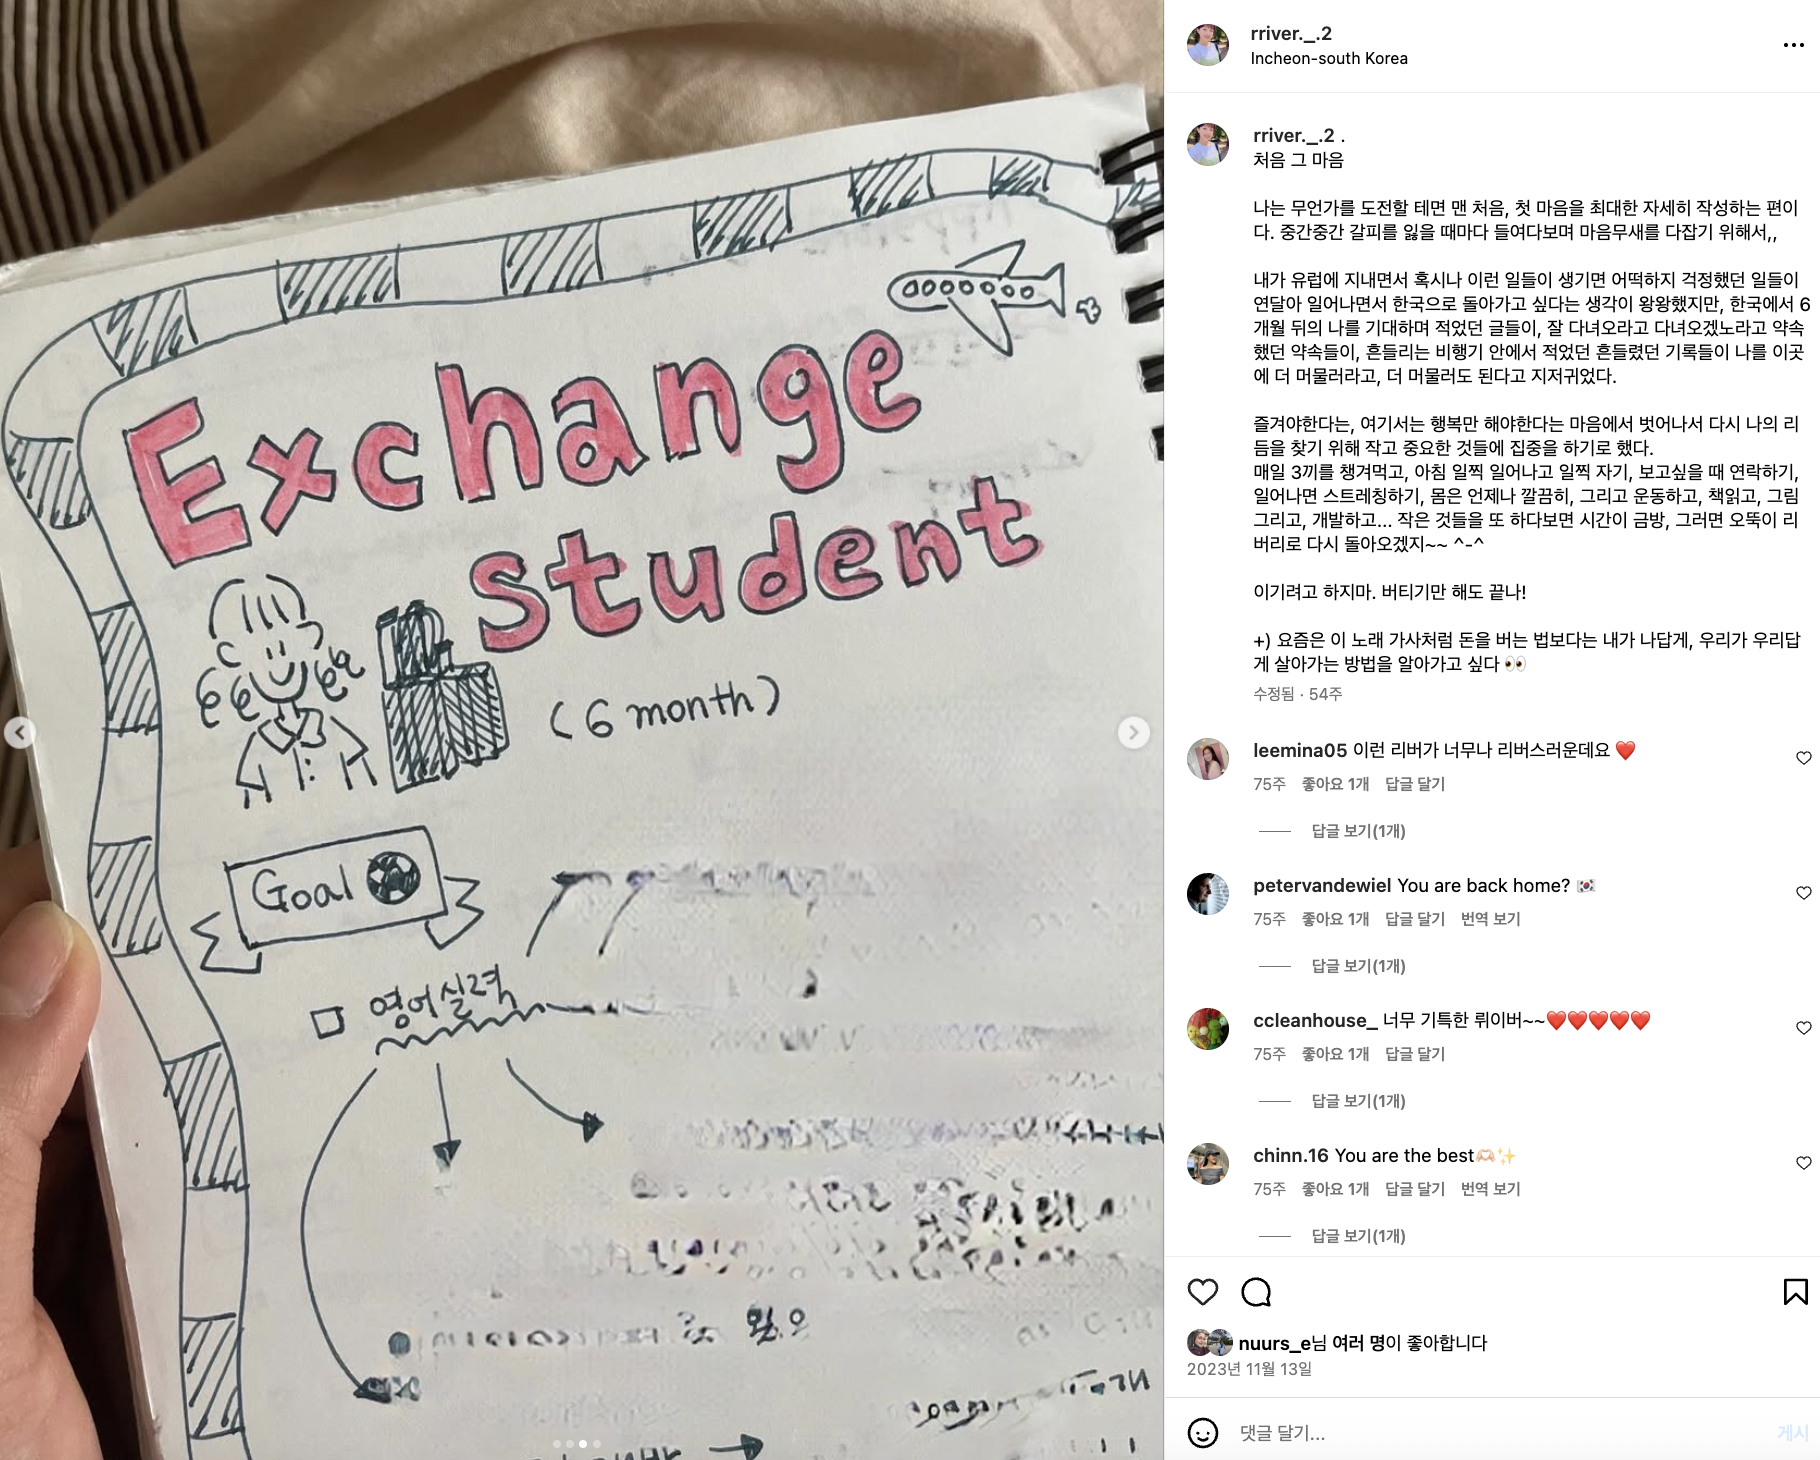 Exchange
student
(6 month)
Goal
영어실력
rriver._.2
Incheon-south Korea
rriver._.2 .
처음 그 마음
나는 무언가를 도전할 테면 맨 처음, 첫 마음을 최대한 자세히 작성하는 편이
다. 중간중간 갈피를 잃을 때마다 들여다보며 마음무새를 다잡기 위해서,,
내가 유럽에 지내면서 혹시나 이런 일들이 생기면 어떡하지 걱정했던 일들이
연달아 일어나면서 한국으로 돌아가고 싶다는 생각이 왕왕했지만, 한국에서 6
개월 뒤의 나를 기대하며 적었던 글들이, 잘 다녀오라고 다녀오겠노라고 약속
했던 약속들이, 흔들리는 비행기 안에서 적었던 흔들렸던 기록들이 나를 이곳
에 더 머물러라고, 더 머물러도 된다고 지저귀었다.
즐겨야한다는, 여기서는 행복만 해야한다는 마음에서 벗어나서 다시 나의 리
듬을 찾기 위해 작고 중요한 것들에 집중을 하기로 했다.
매일 3끼를 챙겨먹고, 아침 일찍 일어나고 일찍 자기, 보고싶을 때 연락하기,
일어나면 스트레칭하기, 몸은 언제나 깔끔히, 그리고 운동하고, 책읽고, 그림
그리고, 개발하고... 작은 것들을 또 하다보면 시간이 금방, 그러면 오뚝이 리
버리로 다시 돌아오겠지~~ ^-^
이기려고 하지마. 버티기만 해도 끝나!
+) 요즘은 이 노래 가사처럼 돈을 버는 법보다는 내가 나답게, 우리가 우리답
게 살아가는 방법을 알아가고 싶다 👀
수정됨 · 54주
leemina05 이런 리버가 너무나 리버스러운데요 ❤️
75주 좋아요 1개 답글 달기
답글 보기(1개)
petervandewiel You are back home? 🇰🇷
75주 좋아요 1개 답글 달기 번역 보기
답글 보기(1개)
ccleanhouse_ 너무 기특한 뤼이버~~❤️❤️❤️❤️❤️
75주 좋아요 1개 답글 달기
답글 보기(1개)
chinn.16 You are the best🫶🏻✨
75주 좋아요 1개 답글 달기 번역 보기
답글 보기(1개)
nuurs_e님 여러 명이 좋아합니다
2023년 11월 13일
댓글 달기...
게시